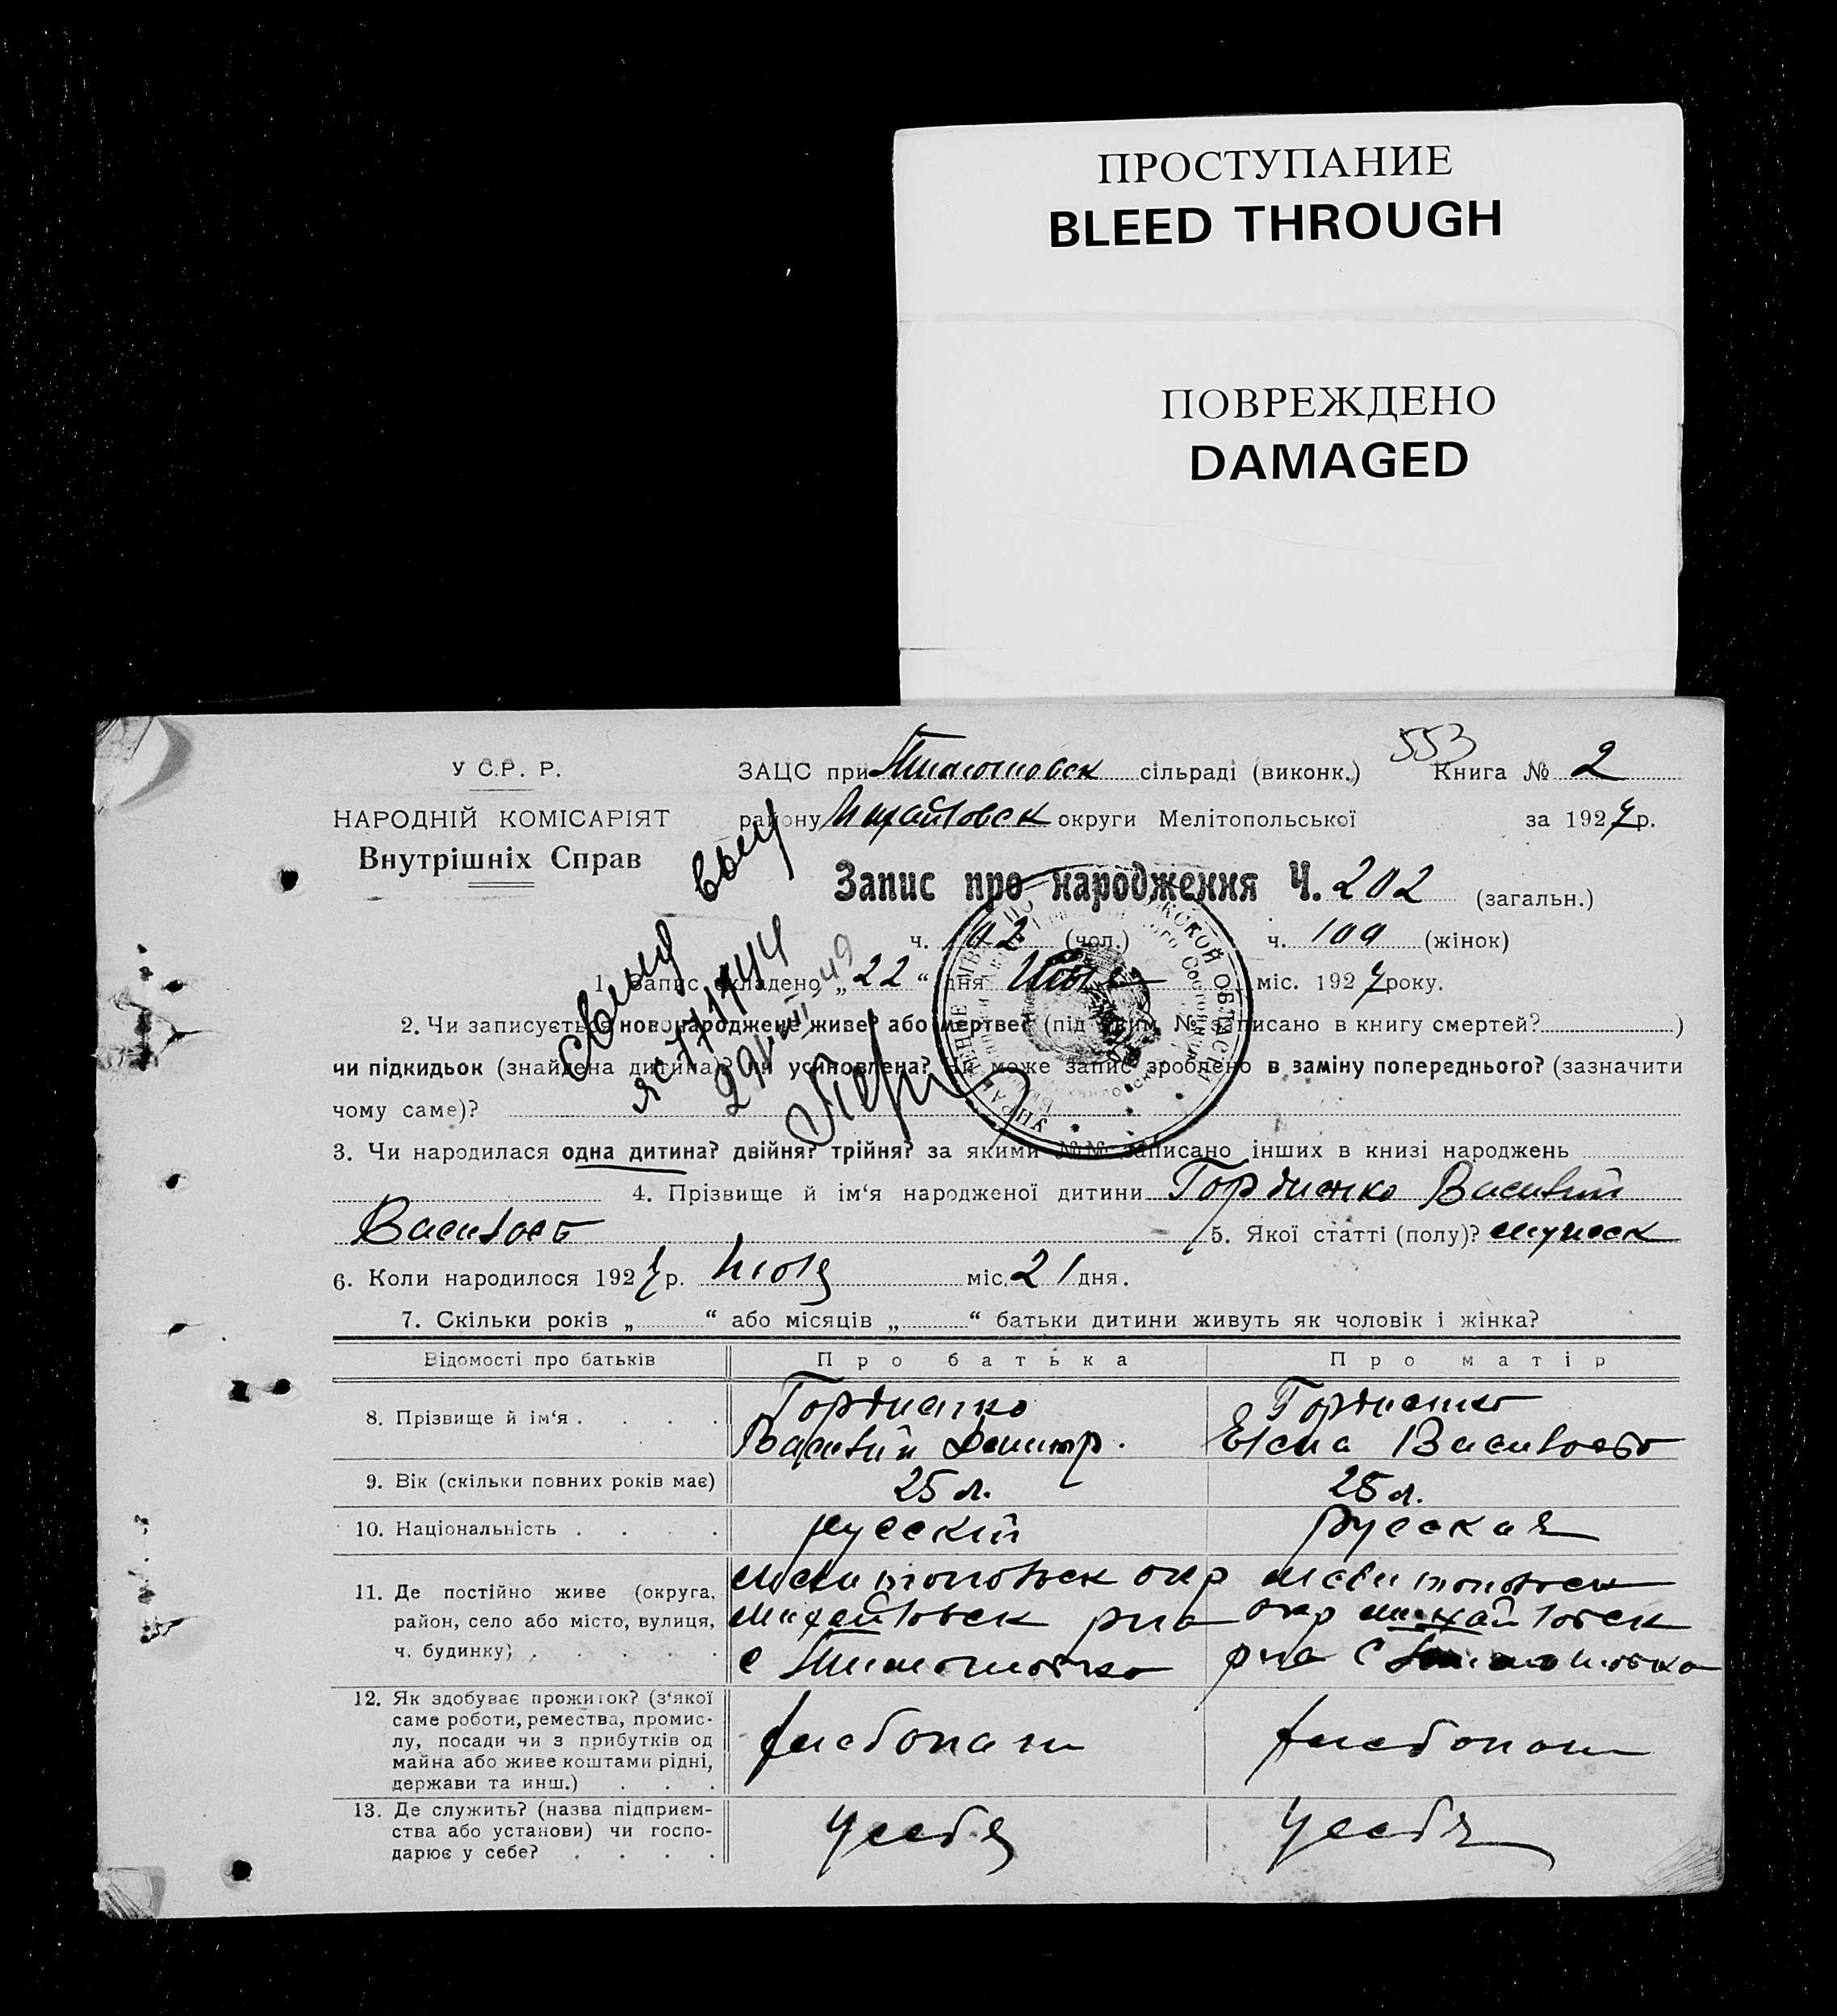 ПРОСТУПАНИЕ
BLEED THROUGH
ПОВРЕЖДЕНО
DAMAGED
553
У С.Р. Р.
НАРОДНІЙ КОМІСАРІЯТ
Внутрішніх Справ
ЗАЦС при Тимошовск сільраді (виконк.) Книга № 2
району Михайловск округи Мелітопольської за 1927 р.
Запис про народження Ч. 202 (загальн.)
ч. 102 (чол.) ч. 100 (жінок)
1. Запис складено „22“ дня Июля міс. 1927 року.
2. Чи записується новонароджене живе? або мертве? (під яким № записано в книгу смертей? )
чи підкидьок (знайдена дитина)? чи усиновлена? Чи може запис зроблено в заміну попереднього? (зазначити
чому саме)?
3. Чи народилася одна дитина? двійня? трійня? за якими №№ записано інших в книзі народжень
4. Прізвище й ім‘я народженої дитини Гордиенко Василий
Васильев 5. Якої статті (полу)? мужск
6. Коли народилося 1927 р. Июля міс. 21 дня.
7. Скільки років „ “ або місяців „ “ батьки дитини живуть як чоловік і жінка?
Відомості про батьків Про батька Про матір
8. Прізвище й ім‘я . . . . Гордиенко Василий Дмитр. Гордиенко Елена Васильевн
9. Вік (скільки повних років має) 25 л. 25 л.
10. Національність . . . . русский русская
11. Де постійно живе (округа, Мелитопольск окр Мелитопольск
район, село або місто, вулиця, Михайловск рна окр Михайловск
ч. будинку) . . . . . с Тимошовка рна с Тимошовка
12. Як здобуває прожиток? (з‘якої
саме роботи, ремества, промис-
лу, посади чи з прибутків од
майна або живе коштами рідні,
держави та инш.) . . . хлебопаш хлебопаш
13. Де служить? (назва підприєм-
ства або установи) чи госпо-
дарює у себе? . . . . у себя у себя